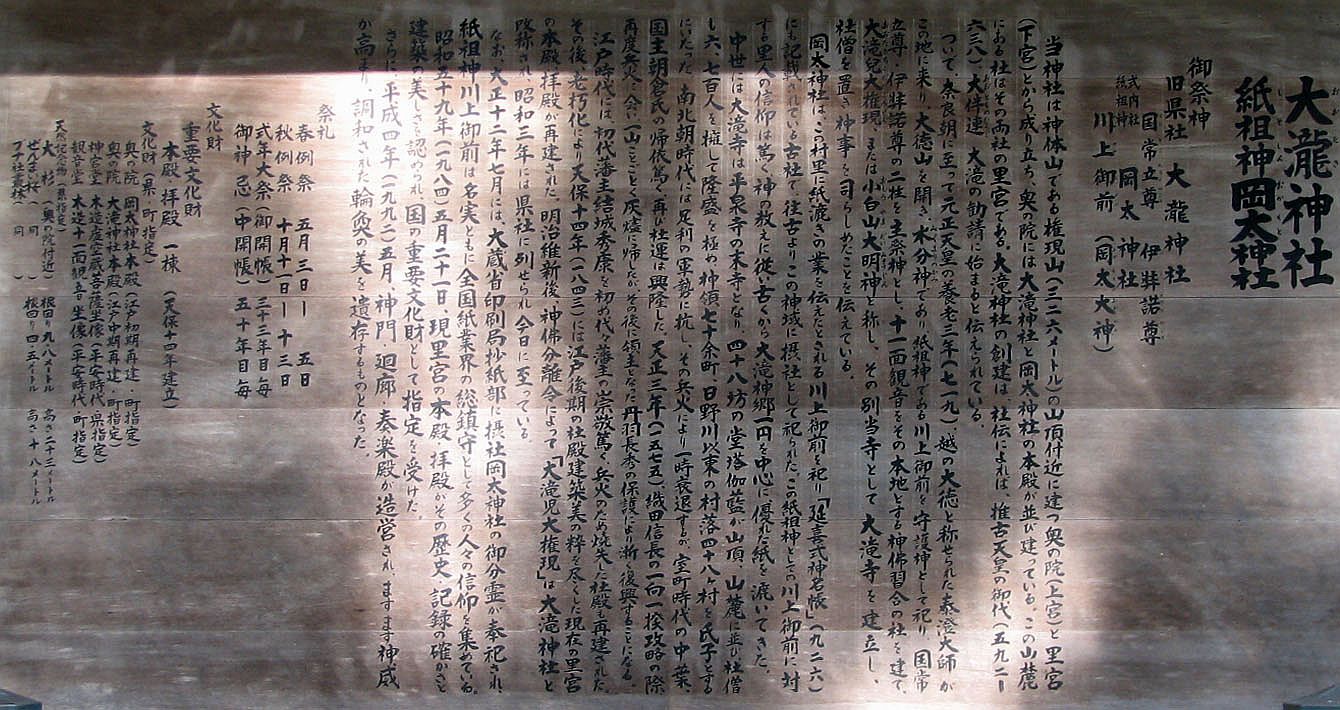 大瀧神社
紙祖神岡太神社
御祭神
旧県社 大瀧神社
国常立尊 伊弉諾尊
式内社 紙祖神 岡太神社
川上御前(岡太大神)
当神社は神体山である権現山(三二六メートル)の山頂付近に建つ奥の院(上宮)と里宮
(下宮)とから成り立ち、奥の院には大滝神社と岡太神社の本殿が並び建っている。この山麓
にある社はその両社の里宮である。大滝神社の創建は、社伝によれば、推古天皇の御代(五九二ー
六三八)、大伴連大滝の勧請に始まると伝えられている。
ついで、奈良朝に至って元正天皇の養老三年(七一九)、越の大徳と称せられた泰澄大師が
この地に来り、大徳山を開き、水分神であり紙祖神である川上御前を守護神として祀り、国常
立尊・伊弉諾尊の二柱を主祭神とし、十一面観音をその本地とする神佛習合の社を建て、
大滝兒大権現、または小白山大明神と称し、その別当寺として大滝寺を建立し、
社僧を置き神事を司らしめたことを伝えている。
岡太神社は、この村里に紙漉きの業を伝えたとされる川上御前を祀り、「延喜式神名帳」(九二六)
にも記載されている古社で、往古よりこの神域に摂社として祀られた。この紙祖神としての川上御前に対
する里人の信仰は篤く、神の教えに従い古くから大滝神郷一円を中心に優れた紙を漉いてきた。
中世には大滝寺は平泉寺の末寺となり、四十八坊の堂塔伽藍が山頂、山麓に並び、社僧
し六、七百人を擁して隆盛を極め、神領七十余町、日野川以東の村落四十八ヶ村を氏子とする
にいたった。南北朝時代には足利の軍勢に抗し、その兵火により一時衰退するが、室町時代の中葉、
国主朝倉氏の帰依篤く、再び社運は興隆した。天正三年(一五七五)、織田信長の一向一揆攻略の際
再度兵火に会い一山ことごとく灰燼に帰したが、その後に領主となった丹羽長秀の保護により漸く復興することになる。
江戸時代には、初代藩主結城秀康を初め代々藩主の崇敬篤く、兵火のため焼失した社殿も再建された。
その後、老朽化により天保十四年(一八四三)には江戸後期の社殿建築美の粋を尽くした現在の里宮
の本殿・拝殿が再建された。明治維新後、神佛分離令によって「大滝児大権現」は大滝神社と
改称され、昭和三年には県社に列せられ今日に至っている。
なお、大正十二年七月には、大蔵省印刷局抄紙部に摂社岡太神社の御分霊が奉祀され、
紙祖神川上御前は名実ともに全国紙業界の総鎮守として多くの人々の信仰を集めている。
昭和五十九年(一九八四)五月二十一日、現里宮の本殿・拝殿がその歴史、記録の確かさと
建築の美しさを認められ、国の重要文化財として指定を受けた。
さらに、平成四年(一九九二)五月、神門、廻廊、奏楽殿が造営され、ますます神威
が高まり、調和された輪奐の美を遺存するものとなった。
祭礼
春例祭 五月三日ー 五日
秋例祭 十月十一日ー十三日
式年大祭(御開帳)三十三年目毎
御神忌(中開帳)五十年目毎
文化財
重要文化財
本殿 拝殿 一棟 (天保十四年建立)
文化財(県・町指定)
奥の院 岡太神社本殿(江戸初期再建・町指定)
奥の院 大滝神社本殿(江戸中期再建・町指定)
神宮堂 木造虚空蔵菩薩坐像(平安時代 県指定)
観音堂 木造十一面観音坐像(平安時代 町指定)
天然記念物(県指定)
大杉(奥の院付近) 根回り九・八メートル 高さ二十三メートル
ぜんまい桜( 同 ) 根回り四・五メートル 高さ十八メートル
ブナ社叢林( 同 )